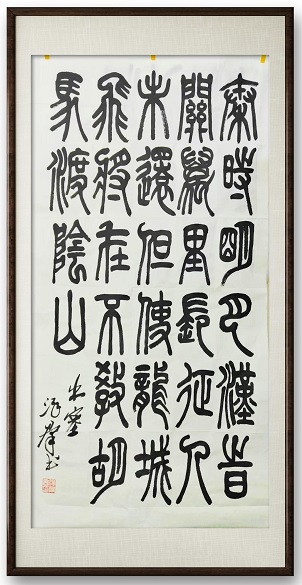 秦時明月漢旹
關萬里長征人
未還但使龍城
飛將在不教胡
馬渡陰山
出塞